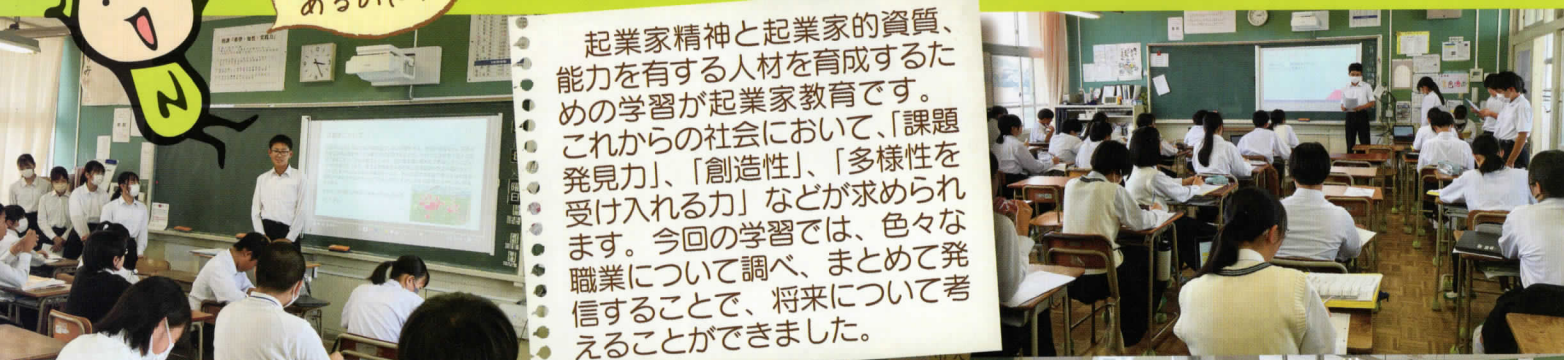 あるのに
起業家精神と起業家的資質、
能力を有する人材を育成するた
めの学習が起業家教育です。
これからの社会において、「課題
発見力」、「創造性」、「多様性を
受け入れる力」などが求められ
ます。今回の学習では、色々な
職業について調べ、まとめて発
信することで、将来について考
えることができました。
N